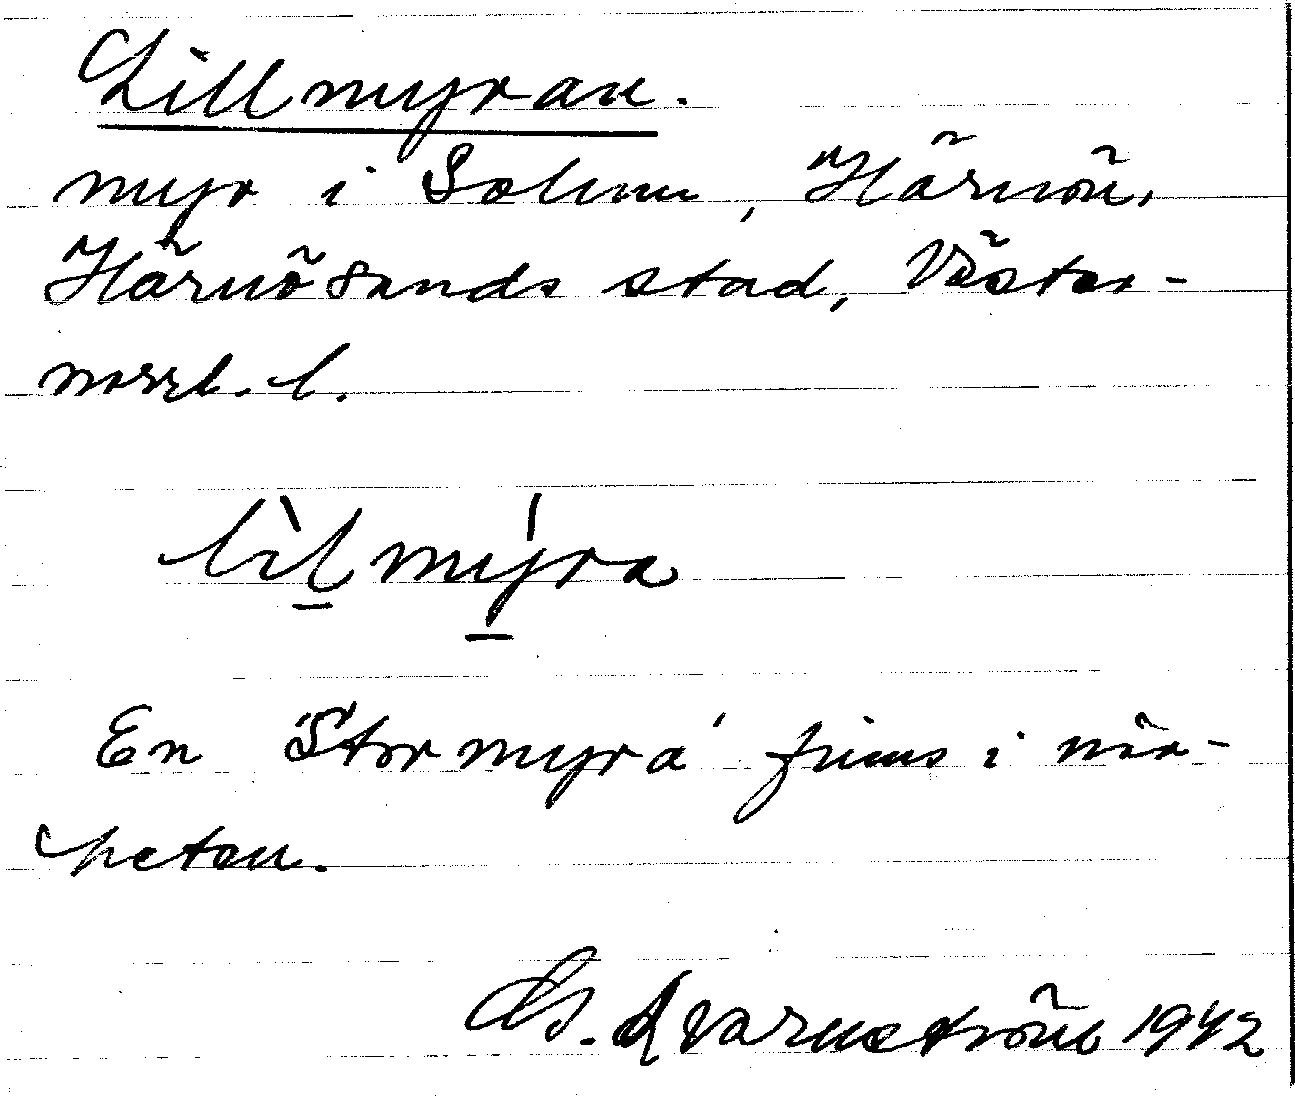 Lillmyran.
myr i Solum, Härnön,
Härnösands stad, Väster-
norrl. l.
lìlmýra
En "Stormyra" finns i när-
heten.
Kvarnström 1942